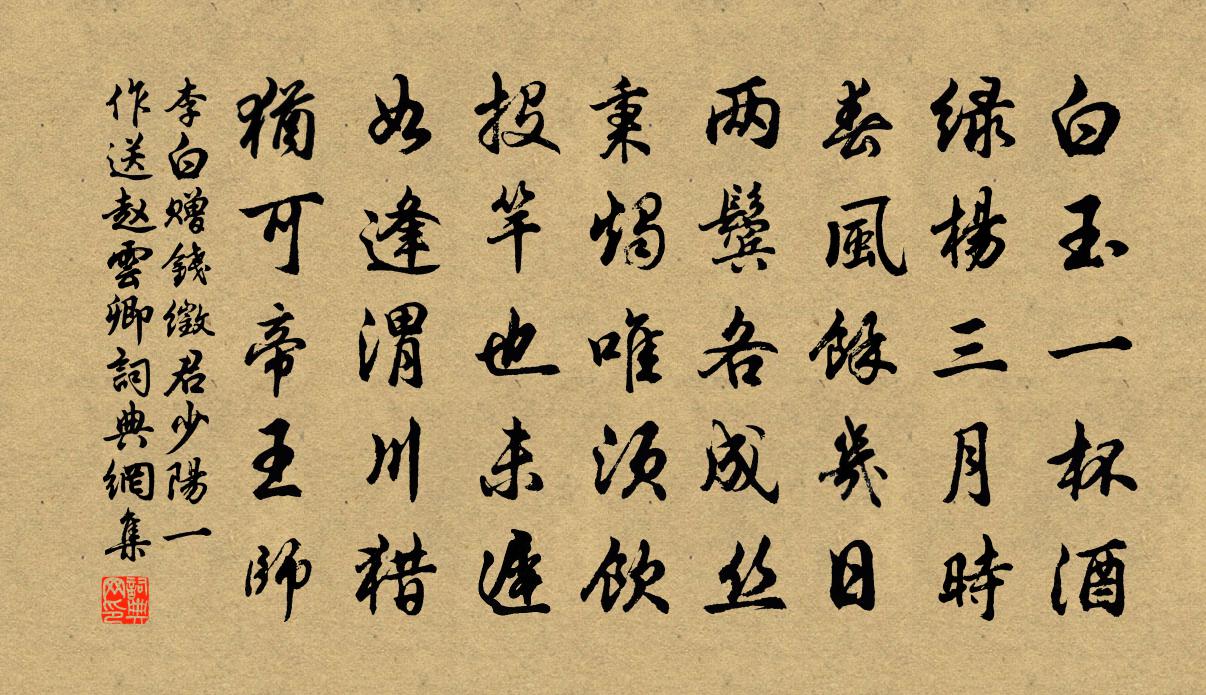 白玉一杯酒
绿楊三月時
春風餘幾日
两鬢各成丝
秉燭唯須飲
投竿也未遲
如逢渭川猎
猶可帝王師
李白赠錢徵君少陽一
作送赵雲卿詞典網集
詞典网印